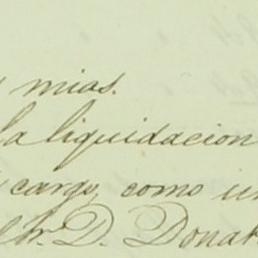 y mias.
la liquidacion
cargo, como
Sr. D. Donat